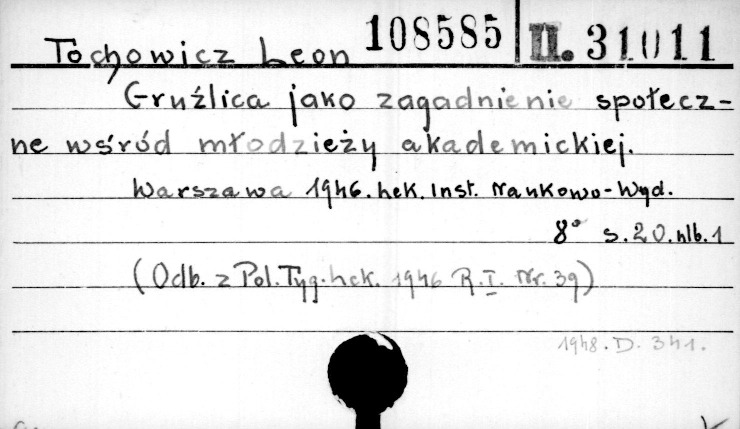 Tochowicz Leon 108585 II. 31011
Gruźlica jako zagadnienie społecz-
ne wśród młodzieży akademickiej.
Warszawa 1946. hek. Inst. Naukowo-Wyd.
8° s. 20. nlb. 1
(Odb. z Pol. Tyg. hek. 1946 R. I. Nr. 39)
1948. D. 341.